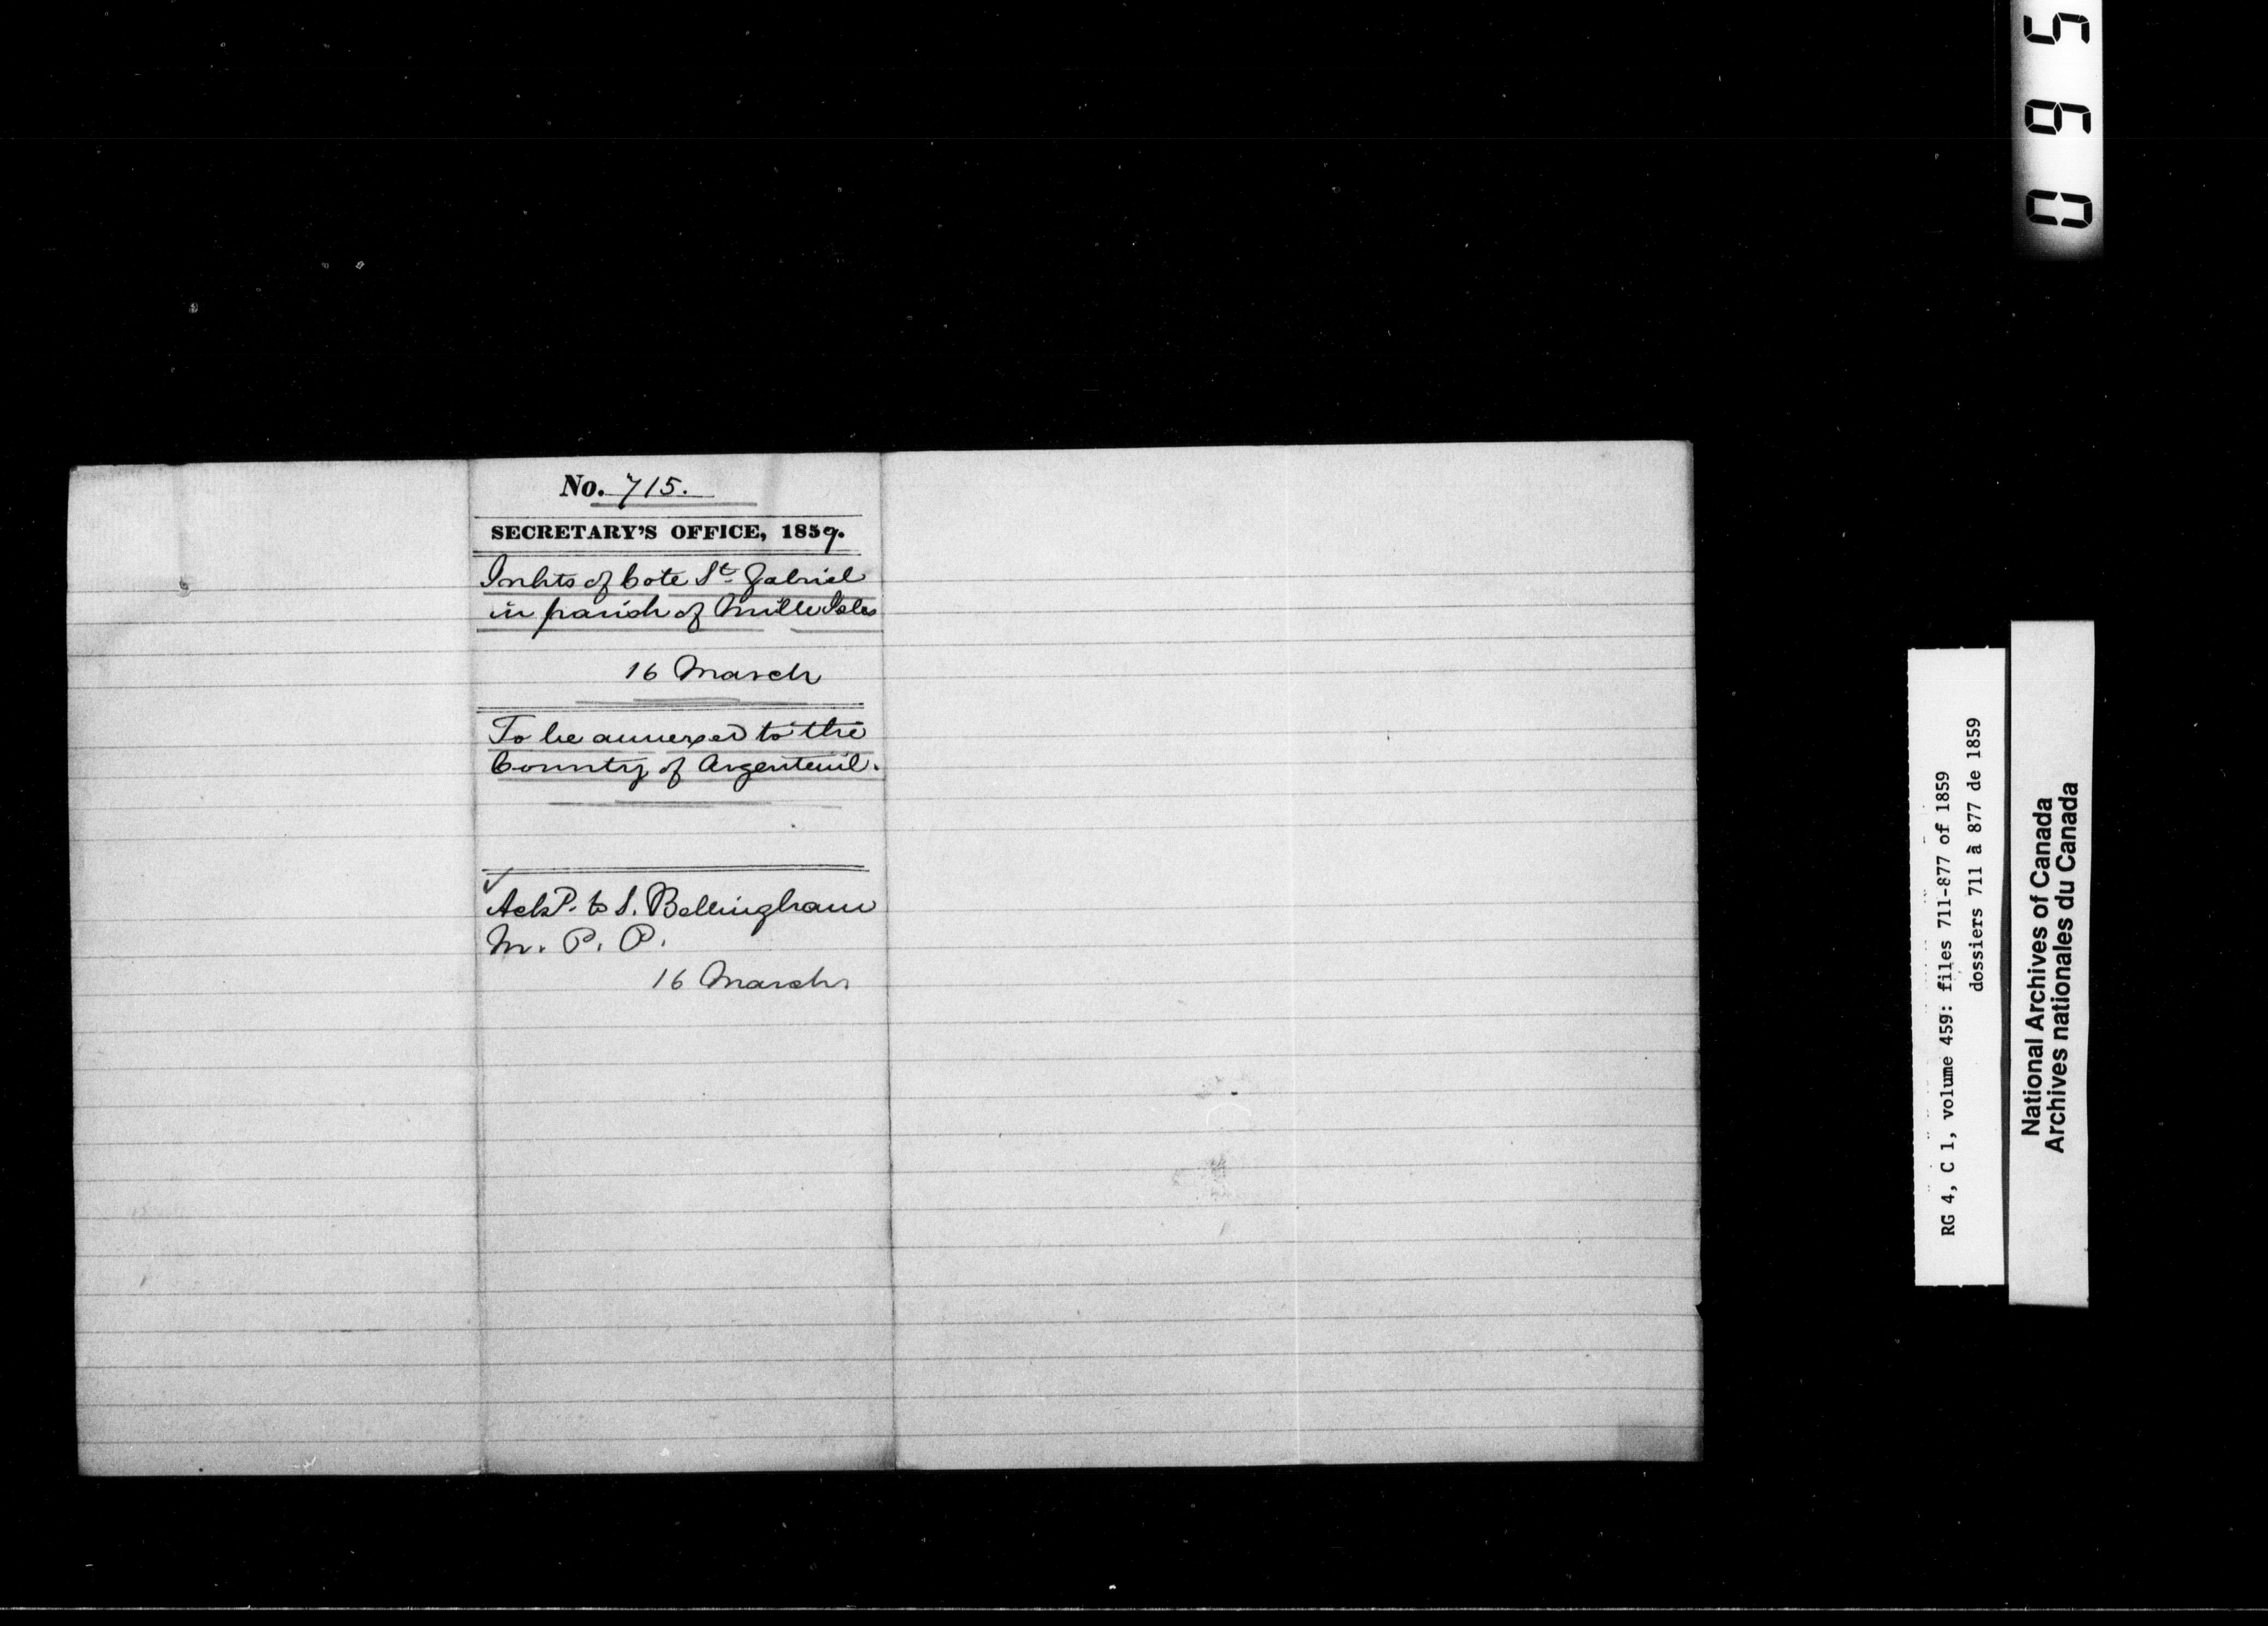 No. 715.
SECRETARY'S OFFICE, 1859.
Inhts of Cote St. Gabriel
in parish of Mille Isles
16 March
To be annexed to the
County of Argenteuil.
✓
Ackd. to S. Bellingham
M. P. P.
16 March
RG 4, C 1, volume 459: files 711-877 of 1859
dossiers 711 à 877 de 1859
National Archives of Canada
Archives nationales du Canada
560